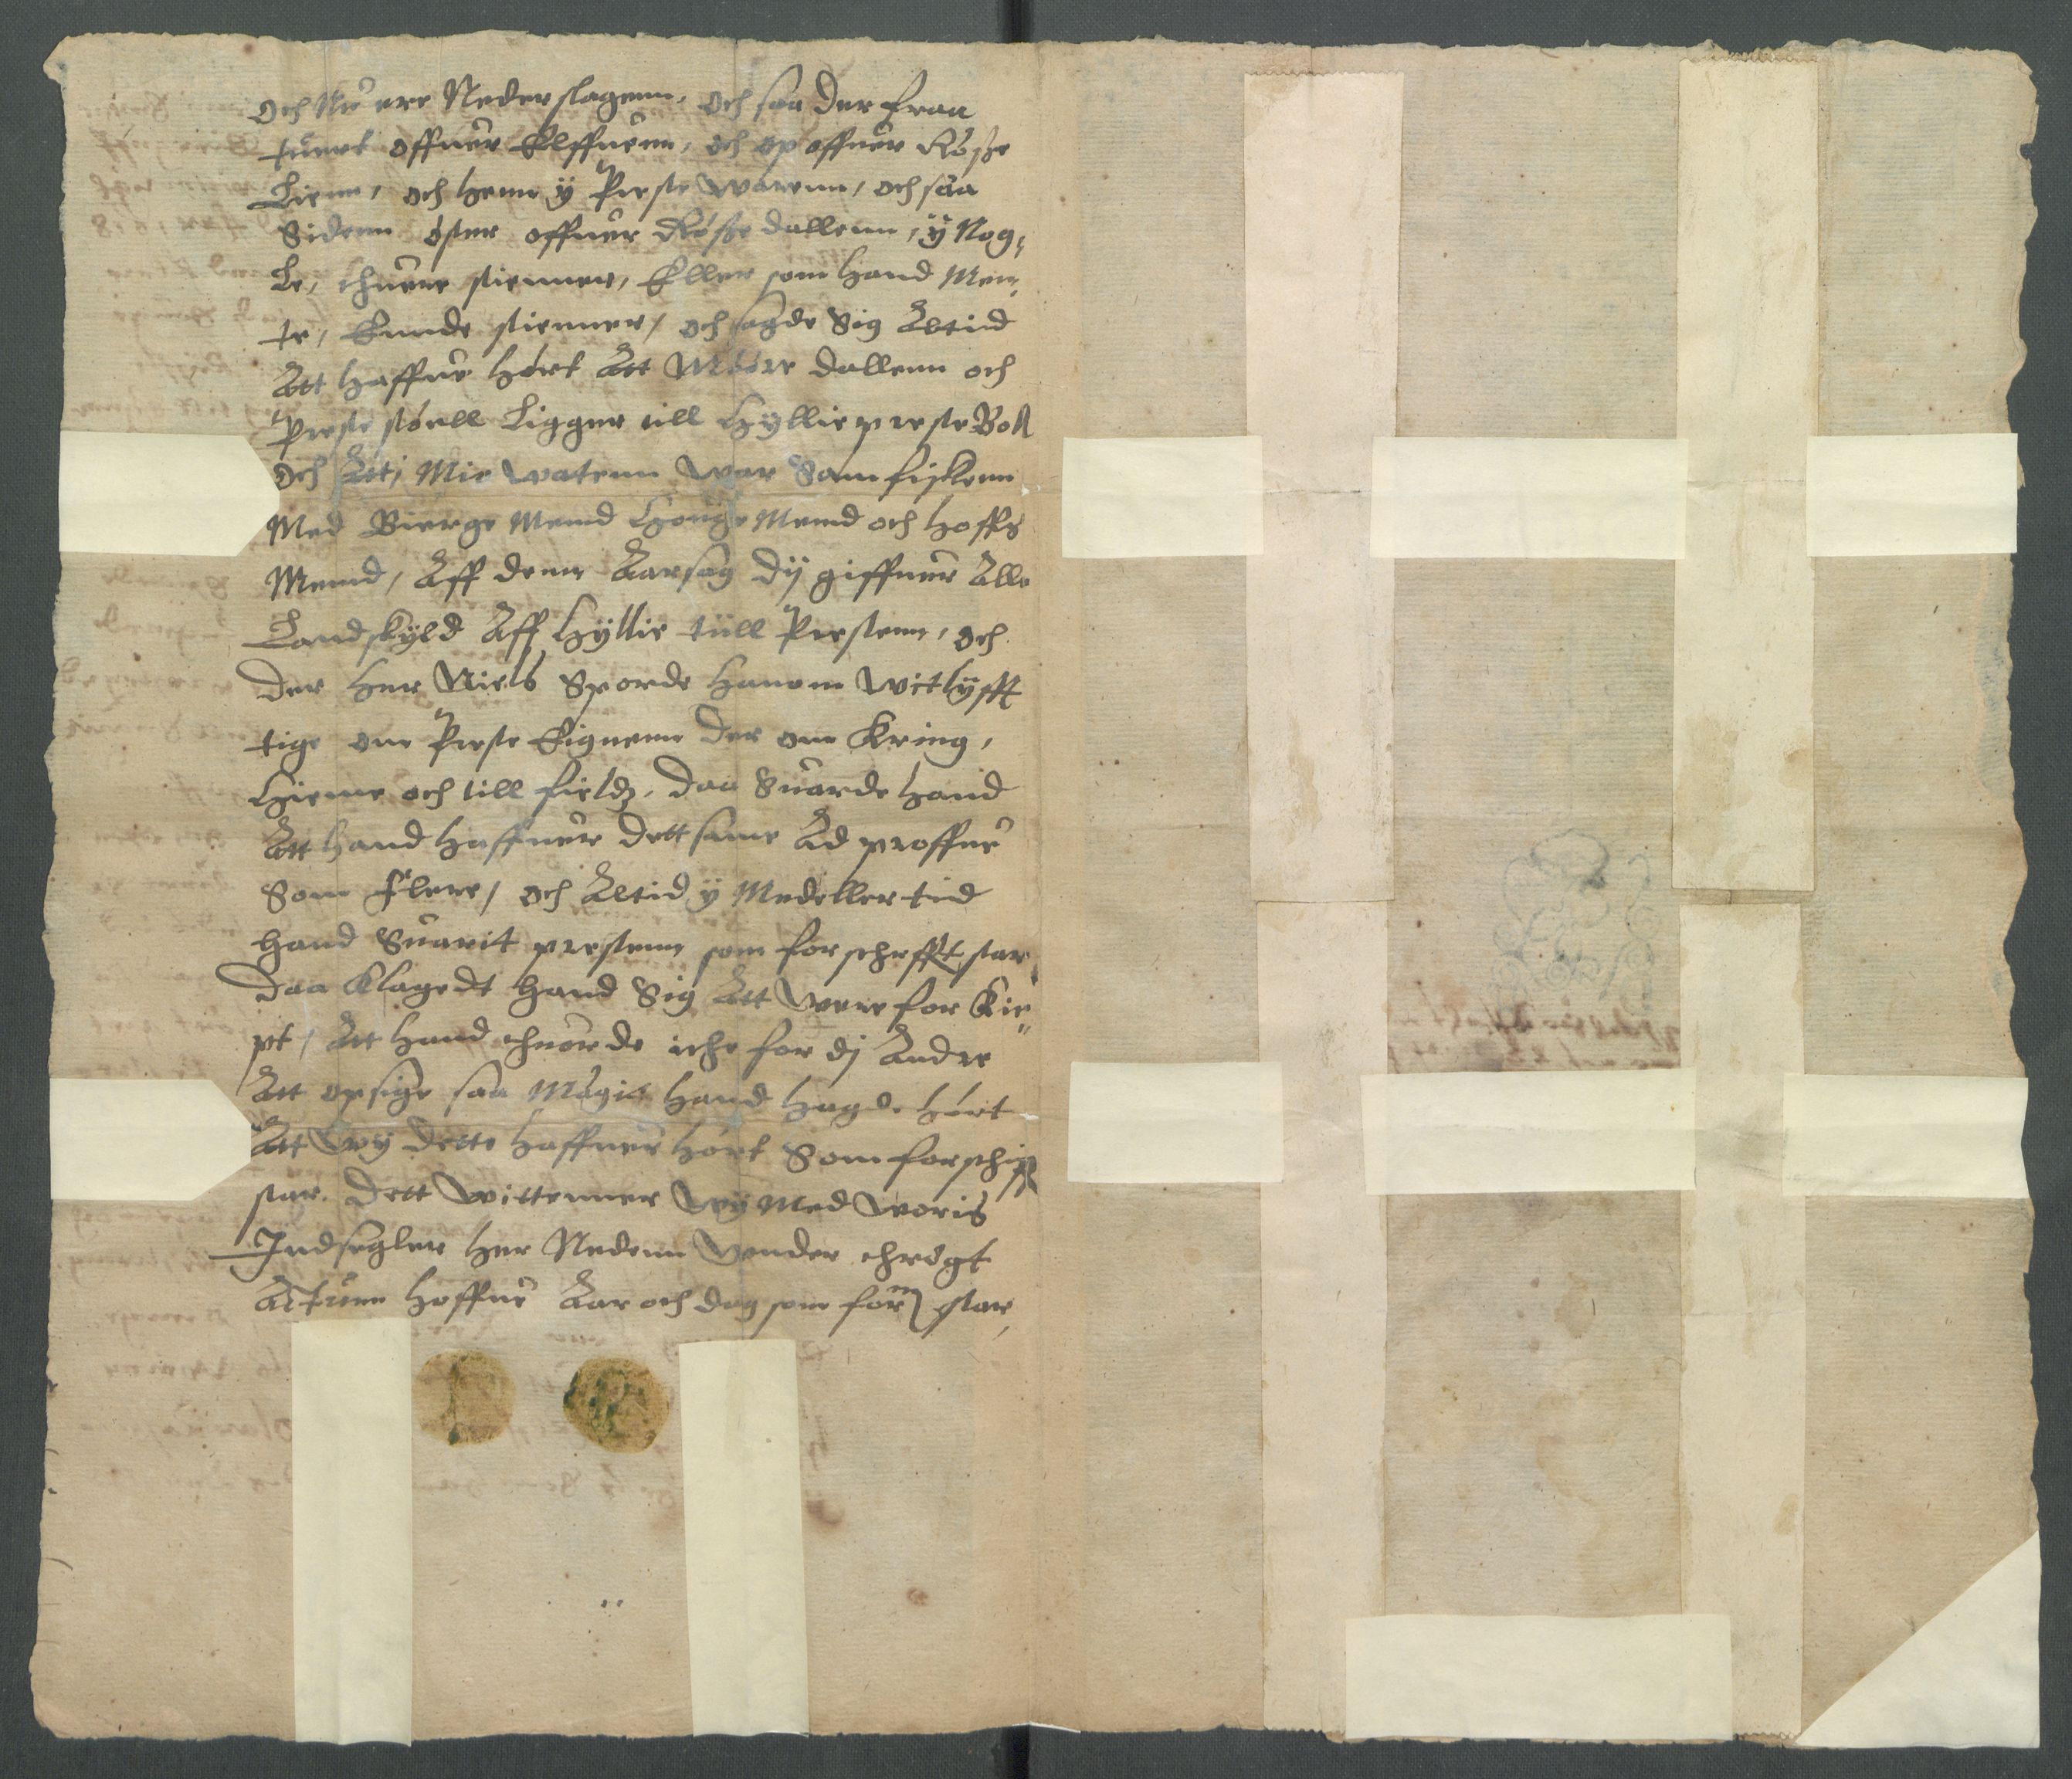 och Nu ere Nederslagenn, och saa der fraa
tuert offuer Elffuenn, och op offuer Røsze
Lienn, och henn ÿ Preste warenn, och saa
Sidenn øster offuer Røsze dallenn, ÿ Nog,
Le, thuere stienner, Eller som hand Men,
te, Runde stienner, och sagde Sig Altid
Att haffue hørt Att Møøre dallenn och
Preste støell Ligger till Hÿllie preste Boll
och Att j Mie watenn war Sam fiskenn
Med Bierge Mend Houge Mend och Hoffs
Mend, Aff denn Aarsag dÿ giffuer Alle
Landskÿld Aff Hÿllie till Prestenn, och
der Her Niels Sporde hanom witlÿfft
tige om Preste Eignenn der om Kring,
Hieme och till fieldz, daa Suarde hand
Att hand haffuer dett same Ad proffue
Som flere, och Altid ÿ Medeller tid
hand Suarit prestenn som for schrefft star
daa Klagedt hand Sig Att were for Kie
pt, Att hand thuorde iche for dj Andre
Att opsige saa Møgit hand hagde hørt
Att wÿ dette haffuer hørt Som forschreff
star. dett wittenner wÿ Med woris
Indsegler her Nedenn wnder thrøgt
Actum Hoffue Aar och dag som forn star,